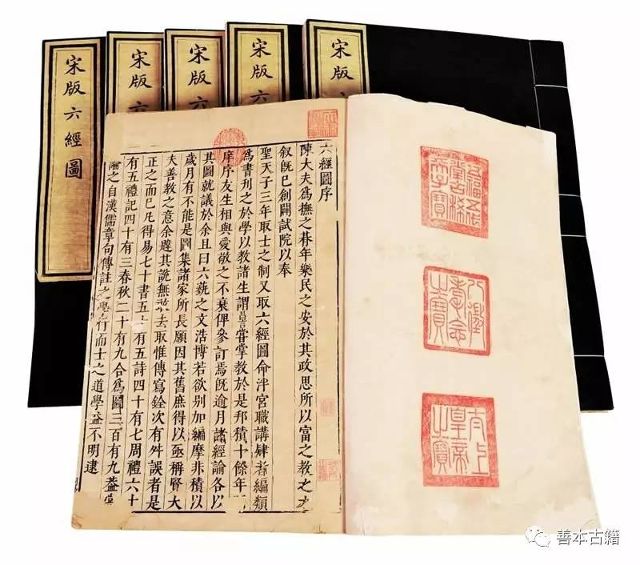 宋版六經圖
宋版六
宋版六
宋版六
宋版
六經圖序
陳大夫為撫之朞年樂民之安於其政思所以富之教之大
叙旣已創闢試院以奉
聖天子三年取士之制又取六經圖命泮宮職講肄者編類
為書刊之於學以教諸生謂嘗掌教於是邦積十餘年
庠序友生相與愛敬之不衰俾參訂焉旣逾月諸經論各以
其圖就議於余且曰六藝之文浩博若欲别加編摩非積以
歲月有不能是圖集諸家所長願因其舊庶得以亟稱賢大
夫善教之意余遵其說無敢去取惟傳寫銓次有舛誤者是
正之而已凡得易七十書五十有五詩四十有七周禮六十
有五禮記四十有三春秋二十有九合為圖三百有九蓋
之自漢儒章句傳註之學行而士之道學益不明逮
五福五代堂古稀天子寶
八徵耄念之寶
太上皇帝之寶
善本古籍